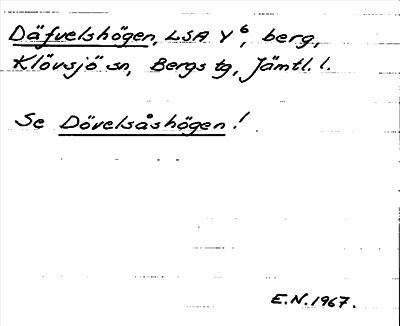 Däfvelshögen, LSA Y⁶, berg,
Klövsjö sn, Bergs tg, Jämtl. l.
Se Dövelsåshögen!
E.N. 1967.